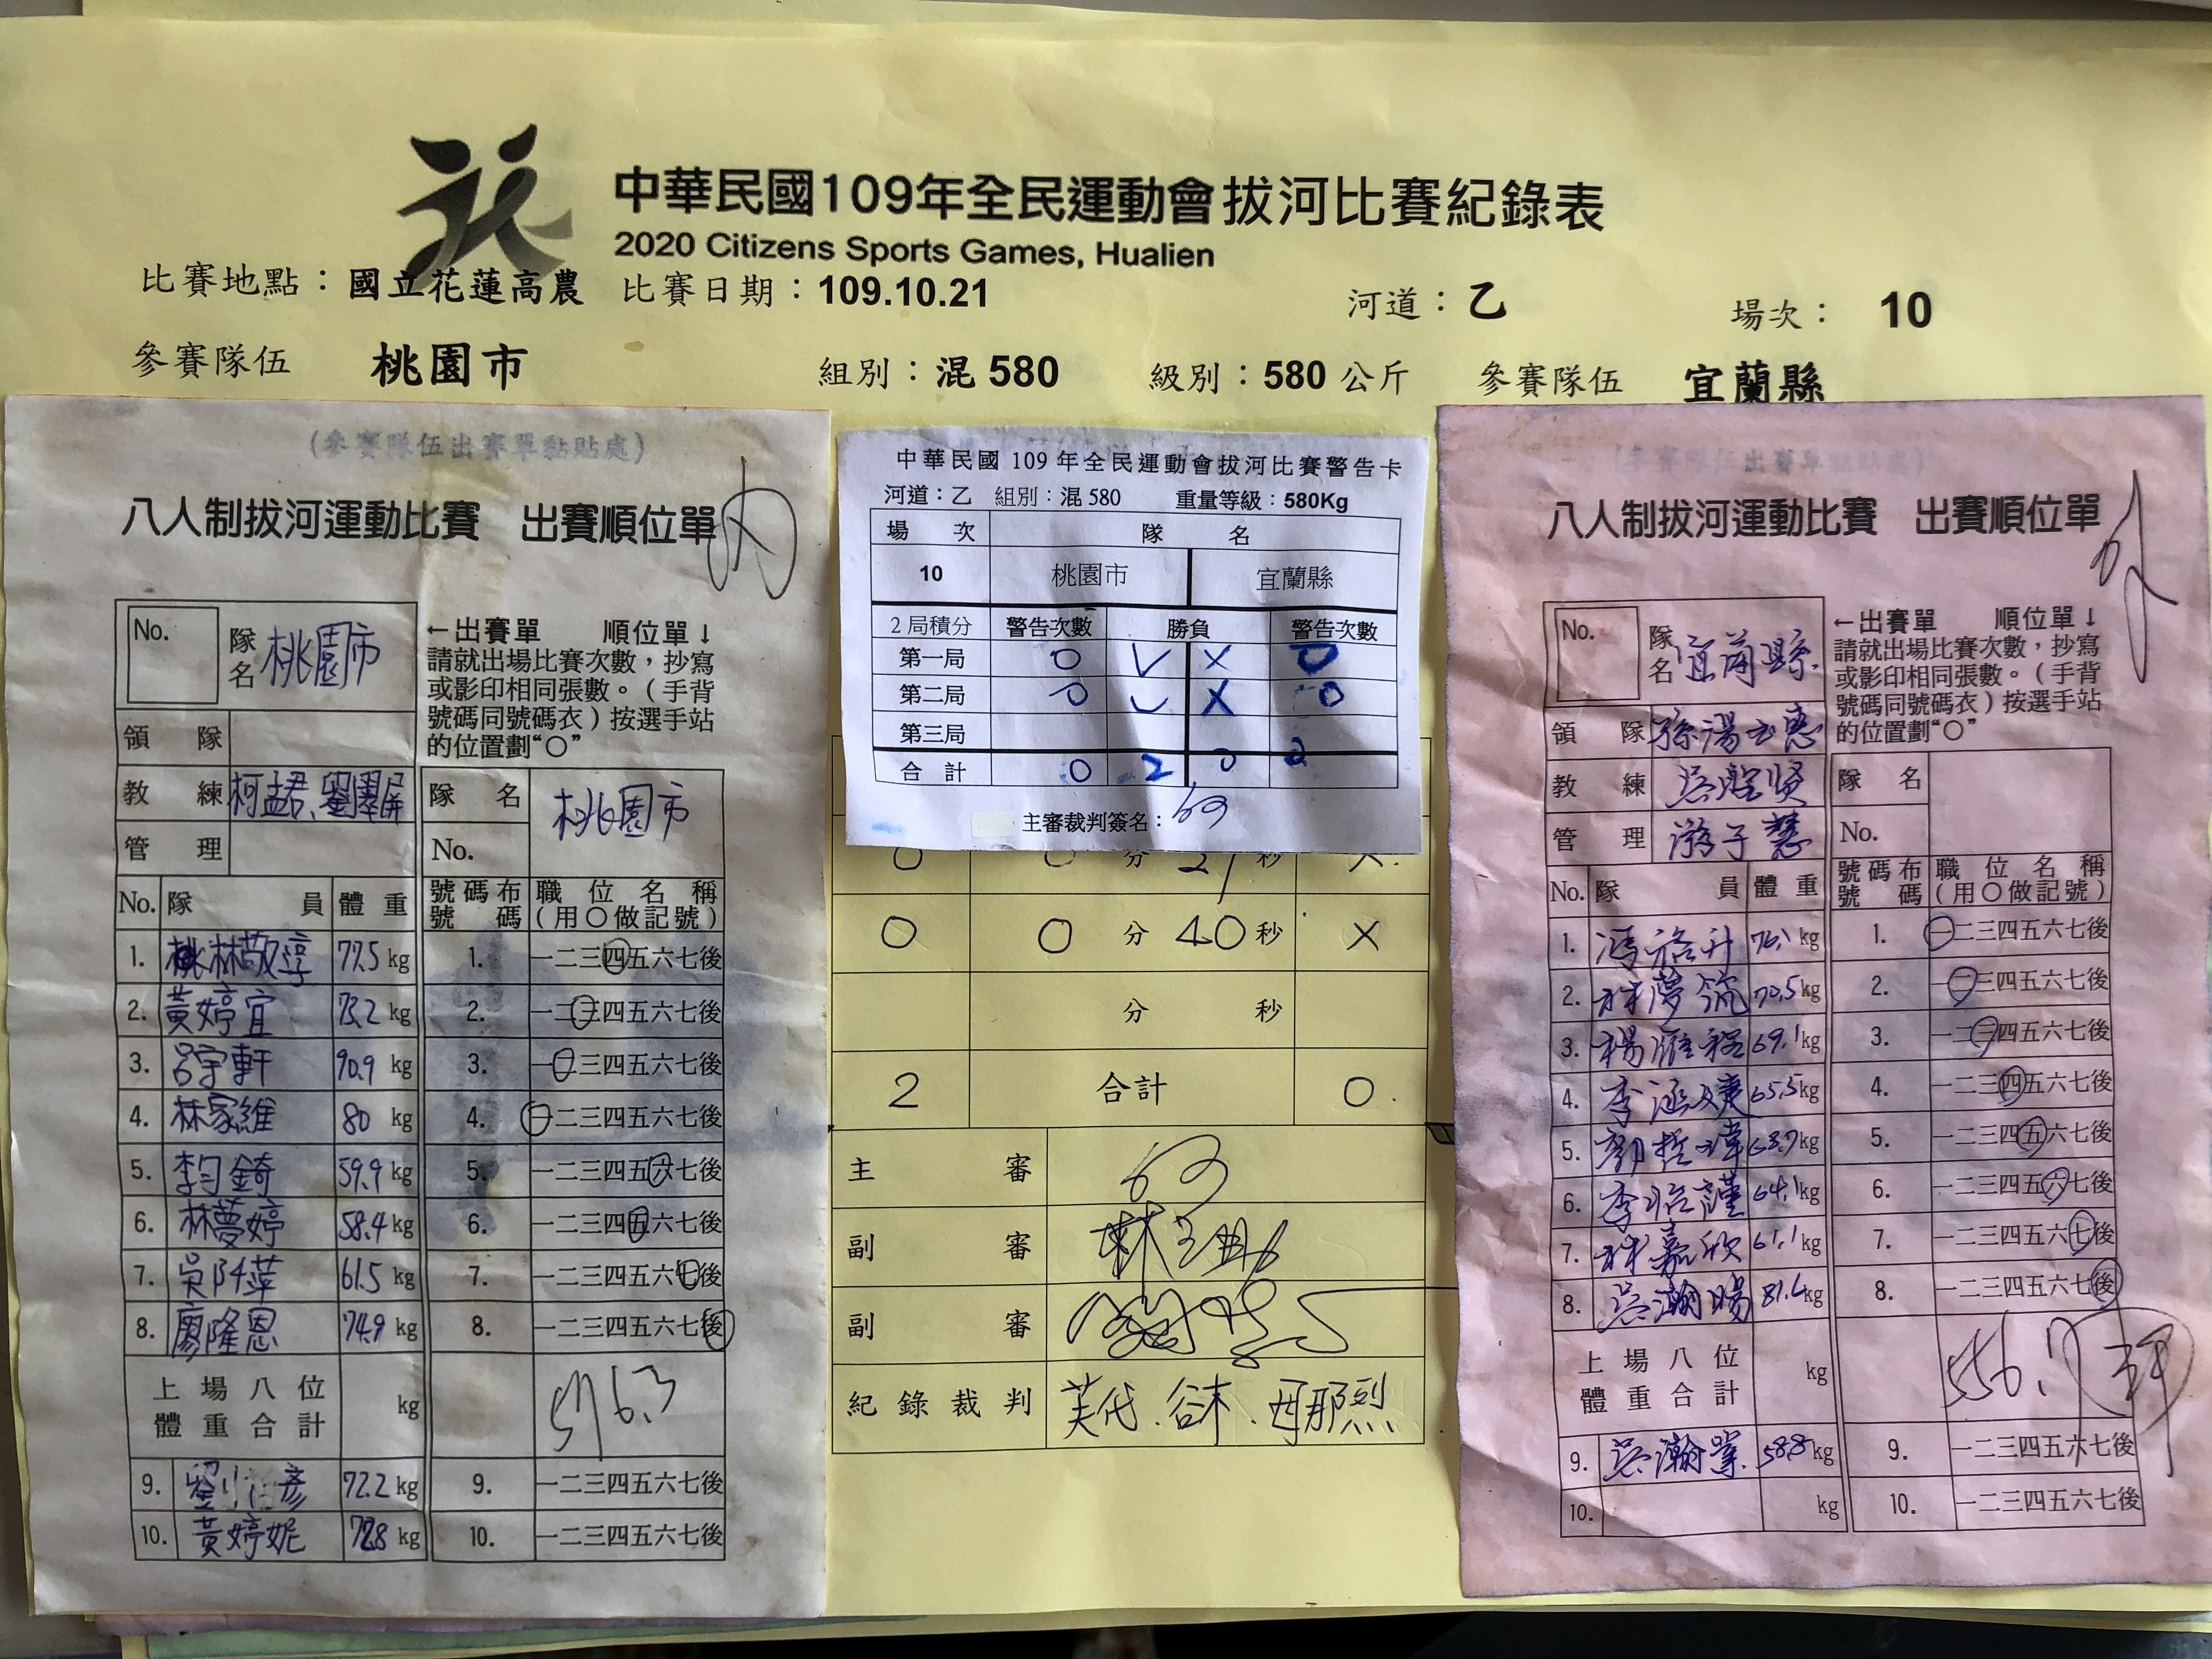 中華民國109年全民運動會拔河比賽紀錄表
2020 Citizens Sports Games, Hualien
比賽地點：國立花蓮高農 比賽日期：109.10.21 河道：乙 場次： 10
參賽隊伍 桃園市 組別：混 580 級別：580 公斤 參賽隊伍 宜蘭縣
(參賽隊伍出賽單黏貼處)
八人制拔河運動比賽 出賽順位單
內
No.
隊名 桃園市
←出賽單 順位單↓
請就出場比賽次數，抄寫
或影印相同張數。（手背
號碼同號碼衣）按選手站
的位置劃“○”
領 隊
教 練
管 理
隊 名 桃園市
No.
No. 隊 員 體 重 號碼布號碼 職位名稱(用○做記號)
1. 林敬淳 77.5 kg 1. 一二三四五六七後
2. 黃婷宜 73.2 kg 2. 一二三四五六七後
3. 呂宇軒 90.9 kg 3. 一二三四五六七後
4. 林家維 80 kg 4. 一二三四五六七後
5. 李勻錡 59.9 kg 5. 一二三四五六七後
6. 林夢婷 58.4 kg 6. 一二三四五六七後
7. 61.5 kg 7. 一二三四五六七後
8. 廖隆恩 74.9 kg 8. 一二三四五六七後
上場八位 體重合計 kg 576.3
9. 72.2 kg 9. 一二三四五六七後
10. 黃婷妮 72.8 kg 10. 一二三四五六七後
中華民國 109 年全民運動會拔河比賽警告卡
河道：乙 組別：混 580 重量等級：580Kg
場 次 隊 名
10 桃園市 宜蘭縣
2 局積分 警告次數 勝負 警告次數
第一局 0 ✓ X 0
第二局 0 ✓ X 0
第三局
合 計 0 2 0 2
主審裁判簽名：
0 0 分 21 秒 X
0 0 分 40 秒 X
分 秒
2 合計 0
主 審
副 審
副 審
紀錄裁判
(參賽隊伍出賽單黏貼處)
八人制拔河運動比賽 出賽順位單
外
No.
隊名 宜蘭縣
←出賽單 順位單↓
請就出場比賽次數，抄寫
或影印相同張數。（手背
號碼同號碼衣）按選手站
的位置劃“○”
領 隊
教 練
管 理 游子慧
隊 名
No.
No. 隊 員 體 重 號碼布號碼 職位名稱(用○做記號)
1. 76.1 kg 1. 一二三四五六七後
2. 林夢筑 70.5 kg 2. 一二三四五六七後
3. 69.1 kg 3. 一二三四五六七後
4. 65.5 kg 4. 一二三四五六七後
5. 68.7 kg 5. 一二三四五六七後
6. 64.1 kg 6. 一二三四五六七後
7. 林嘉欣 61.1 kg 7. 一二三四五六七後
8. 吳瀚暘 81.6 kg 8. 一二三四五六七後
上場八位 體重合計 kg 556.7
9. 58.8 kg 9. 一二三四五六七後
10. kg 10. 一二三四五六七後